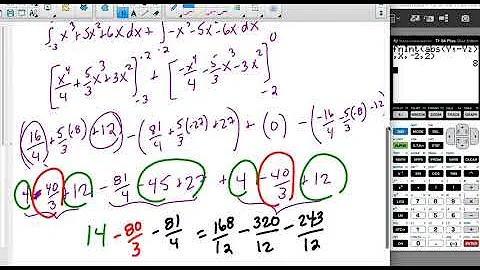 ∫₋₃ x³+5x²+6x dx + ∫₋₂ -x³-5x²-6x dx
[x⁴/4 + 5/3 x³ + 3x²]₋₃⁻² + [-x⁴/4 - 5/3 x³ - 3x²]₋₂⁰
(16/4 + 5/3(-8) + 12) - (81/4 + 5/3(-27) + 27) + (0) - (-16/4 - 5/3(-8) - 12)
4 - 40/3 + 12 - 81/4 - 45 + 27 + 4 - 40/3 + 12
14 - 80/3 - 81/4 = 168/12 - 320/12 - 243/12
TI-84 Plus
fnInt(abs(Y₁-Y₂)
,X,-2,2)
8